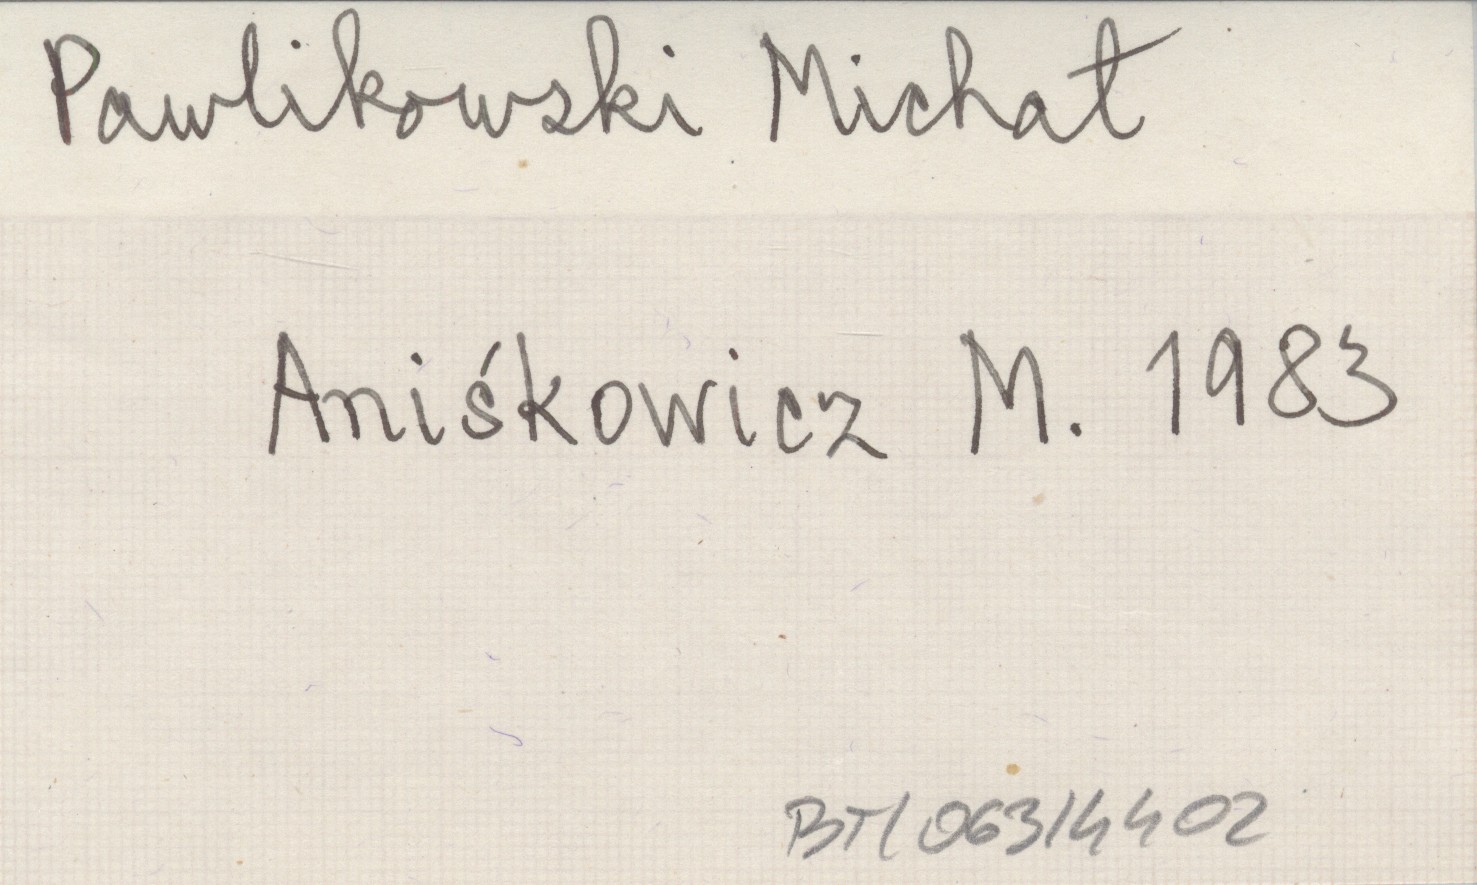 Pawlikowski Michał
Aniśkowicz M. 1983
BT/063/4402